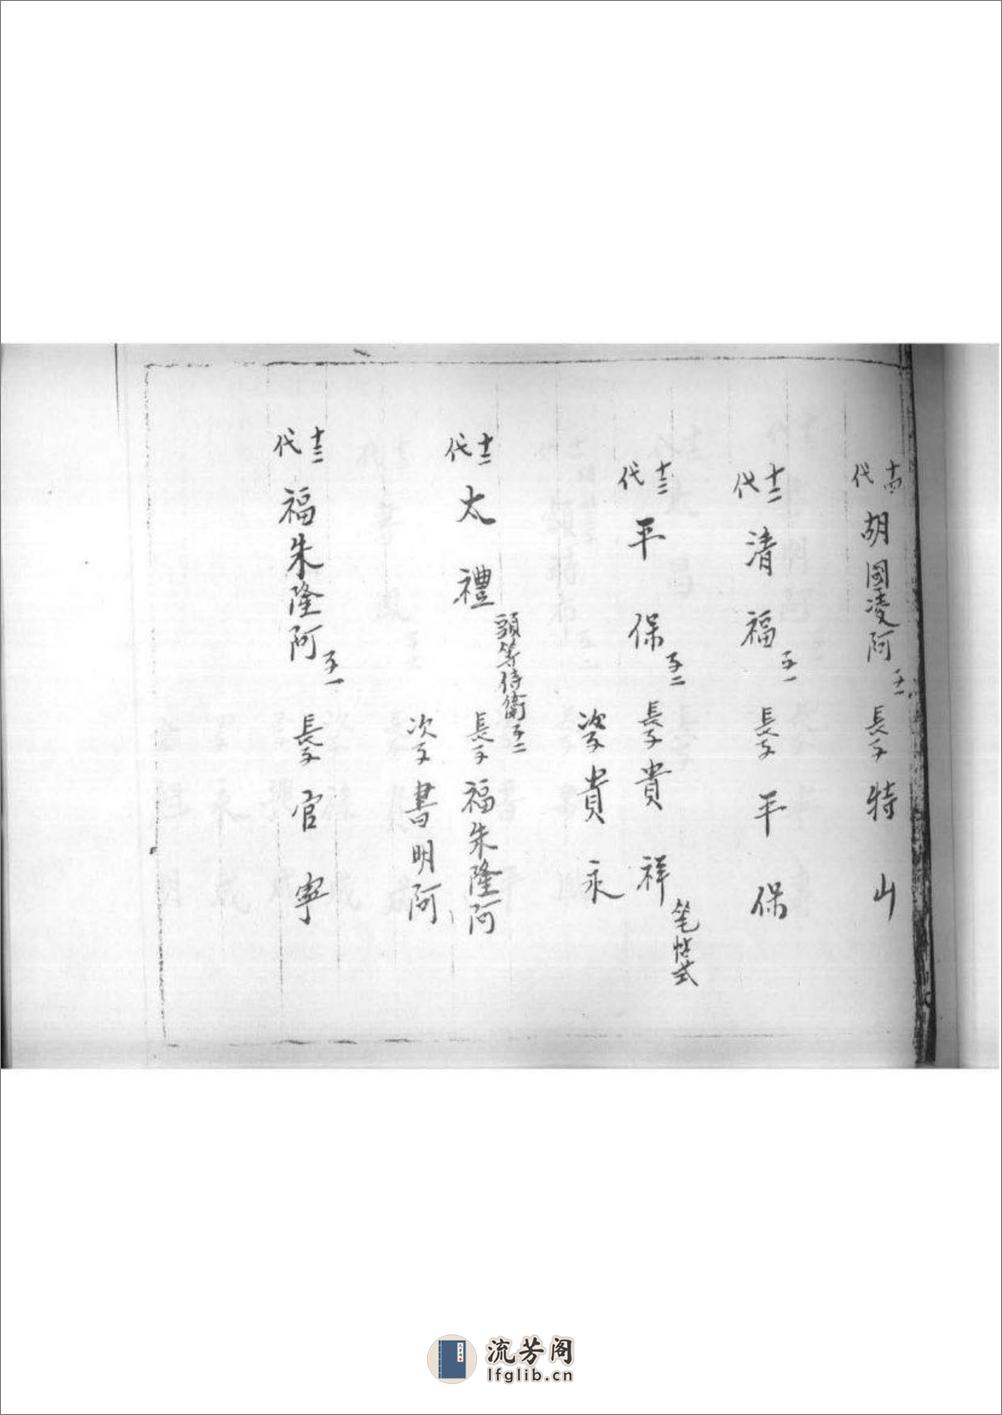 十四代 胡圖凌阿 子一 長子 特山
十二代 清福 子一 長子 平保
十三代 平保 子二 長子 貴祥 笔帖式
次子 貴永
十二代 太禮 頭等侍衛 子二 長子 福朱隆阿
次子 書明阿
十三代 福朱隆阿 子一 長子 官寧
流芳阁
lfglib.cn